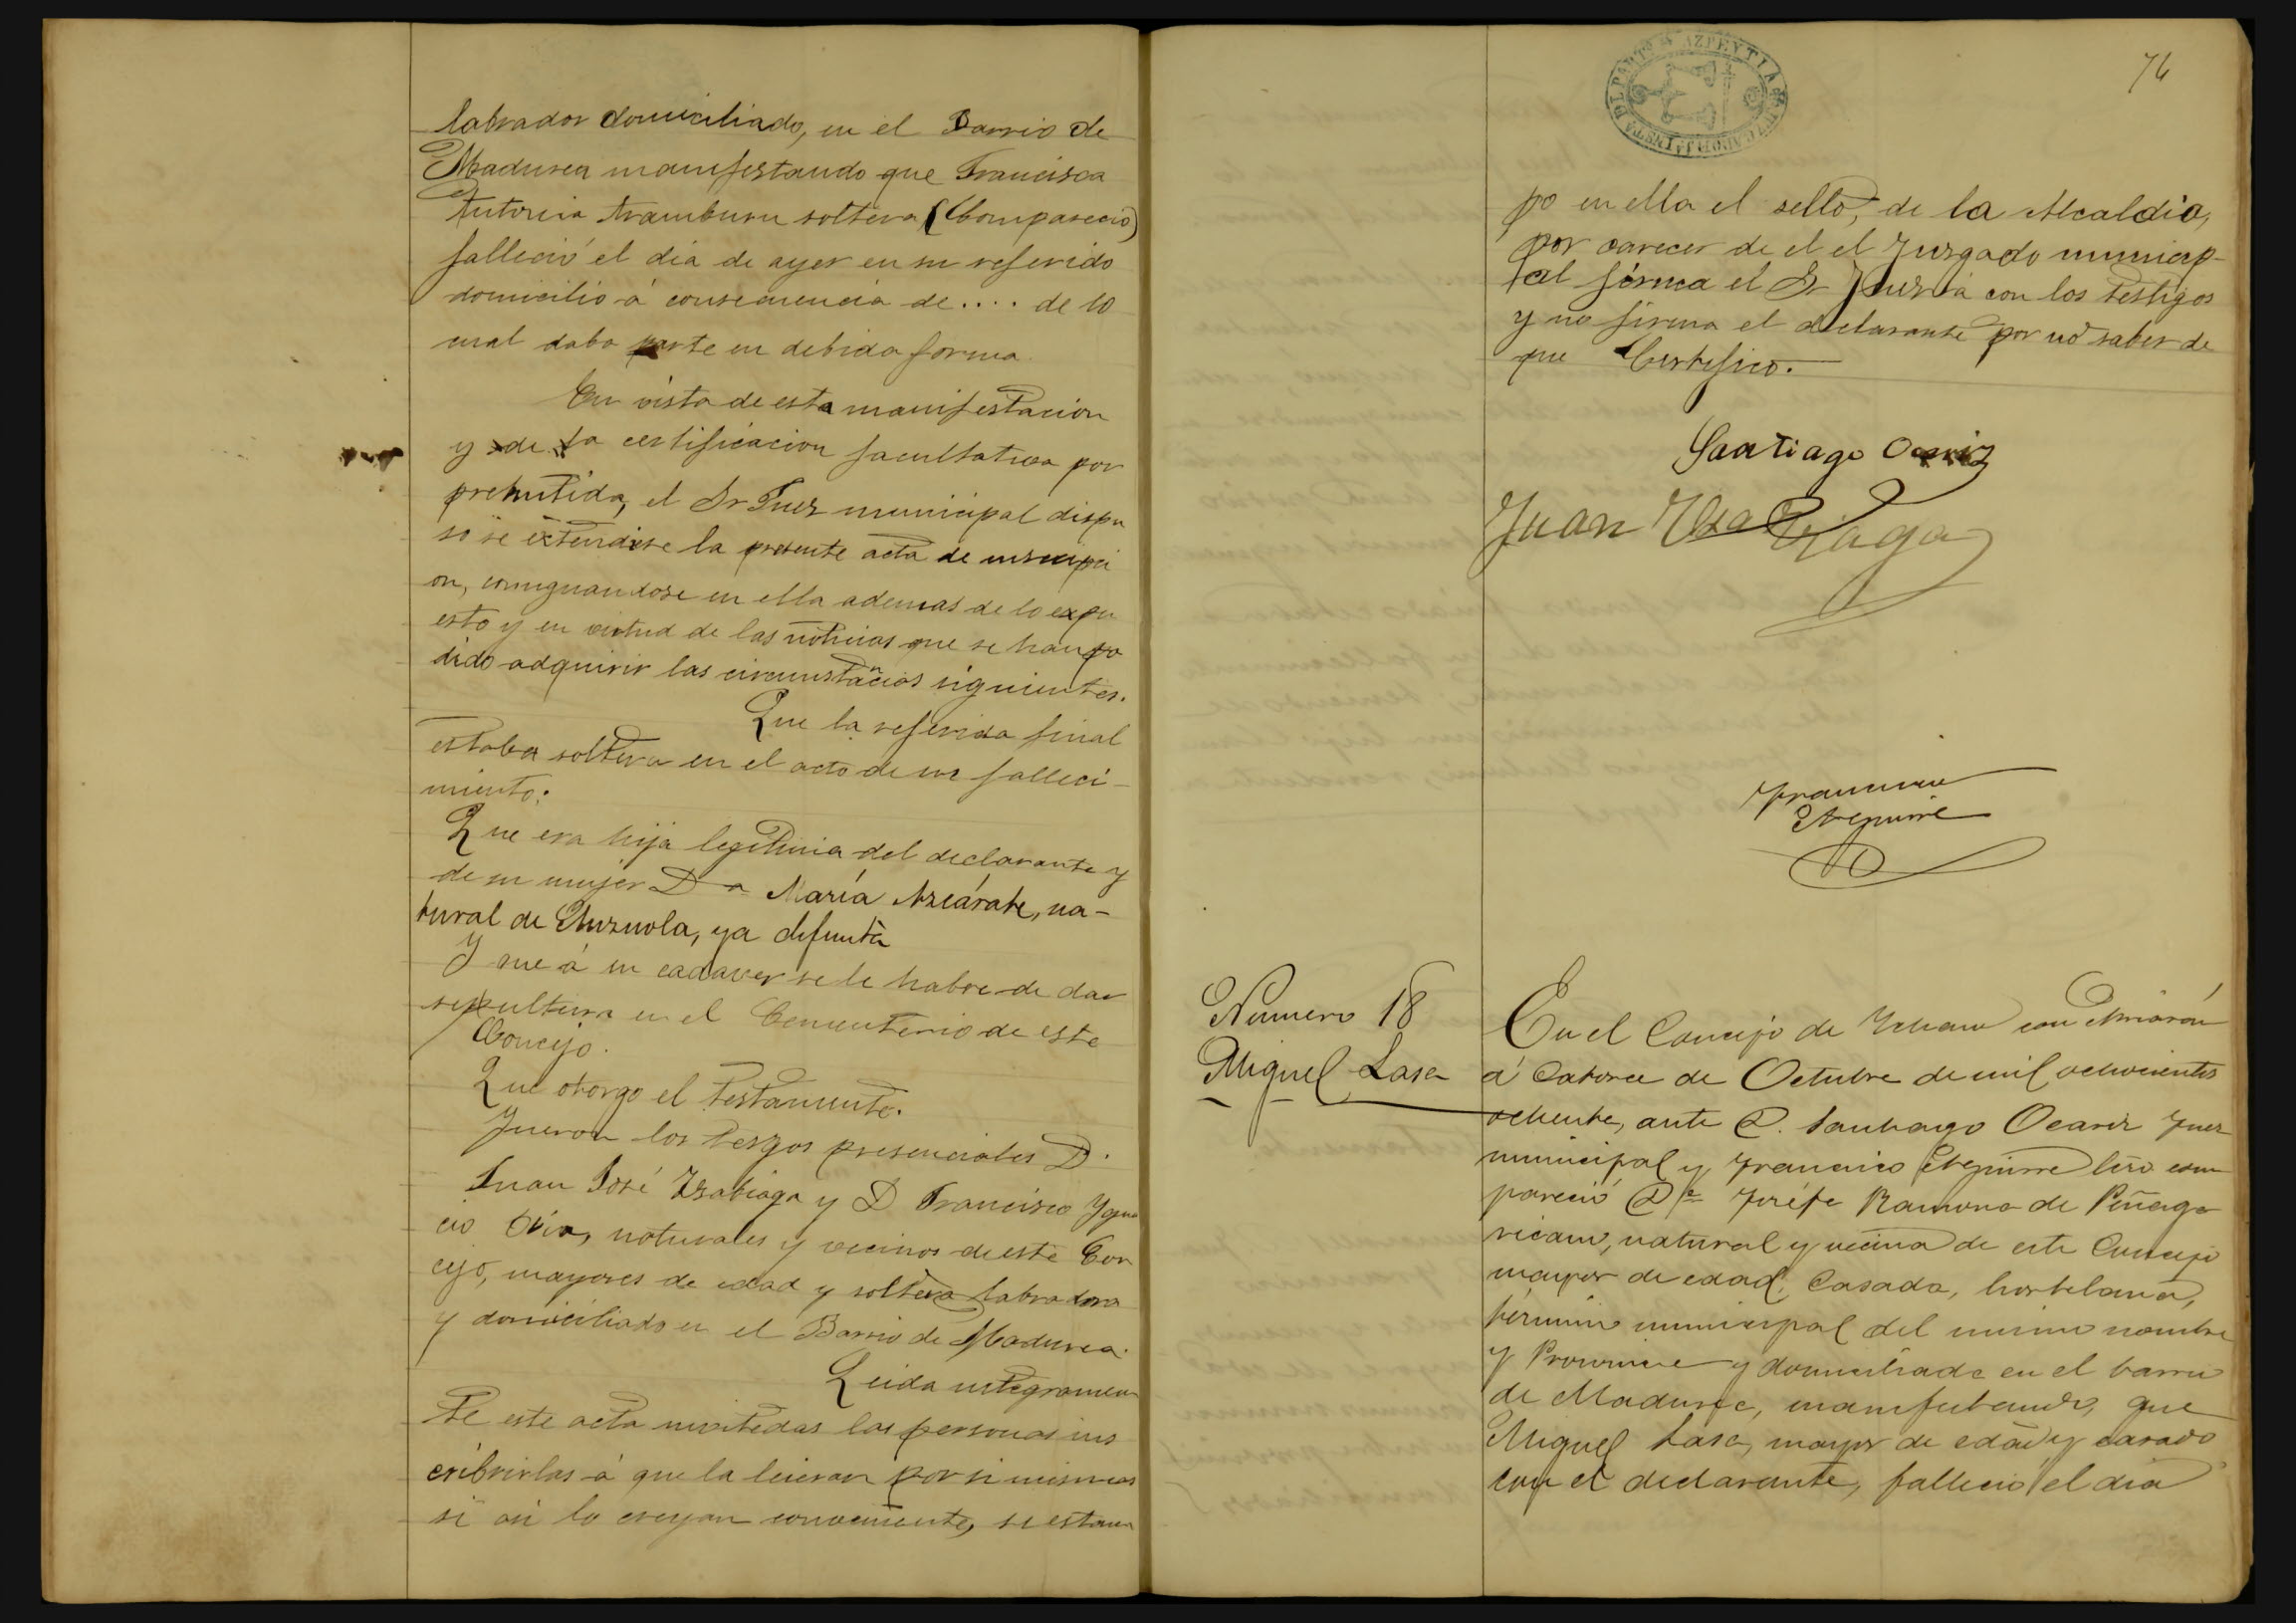 labrador domiciliado, en el Barrio de
Madurea manifestando que Francisca
Antonia Aramburu soltera (Comparecio)
falleció el dia de ayer en su referido
domicilio á consecuencia de .... de lo
cual daba parte en debida forma.
En vista de esta manifestacion
y de la certificacion facultativa por
, el Sr Juez municipal dispu
so se extendiese la presente acta de inscripci
on, consignandose en ella ademas de lo expu
esto y en virtud de las noticias que se han po
dido adquirir las circunstancias siguientes.
Que la referida final
estaba soltera en el acto de su falleci-
miento.
Que era hija legitima del declarante y
de su mujer Da María Azcárate, na-
tural de Anzuola, ya difunta
Y que á su cadaver se le habre de dar
sepultura en el Cementerio de este
Concejo.
Que otorgo el testamento.
Fueron los tesgos presenciales D.
Juan José Izabiaga y D Francisco Ygna
cio Oria, naturales y vecinos de este Con
cejo, mayores de edad y soltera labradora
y domiciliado en el Barrio de Madurea.
Leida integramen
te este acta las personas ins
cribirlas á que la leieran por si mismas
si asi lo creyan conveniente, se estam
76
AZPEYTIA
po en ella el sello, de la Alcaldia,
por carecer de el el Juzgado municip-
al firma el Sr Juez á con los testigos
y no firma el declarante por no saber de
que Certifico.
Santiago Ocariz
Juan Izabiaga
Francisco
Eteguirre
Numero 18
Miguel Lasa
En el Concejo de Ichaso con Arriarán
á Catorce de Octubre de mil ochocientos
ochenta, ante D. Santiago Ocariz Juez
municipal y Francisco Eteguirre Srio com
pareció Da Josefa Ramona de Peñaga
ricano, natural y vecina de este Concejo
mayor de edad, Casada, hortelana,
término municipal del mismo nombre
y Provincia y domiciliada en el barrio
de Madurea, manifestando, que
Miguel Lasa, mayor de edad y casado
con el declarante, falleció el dia